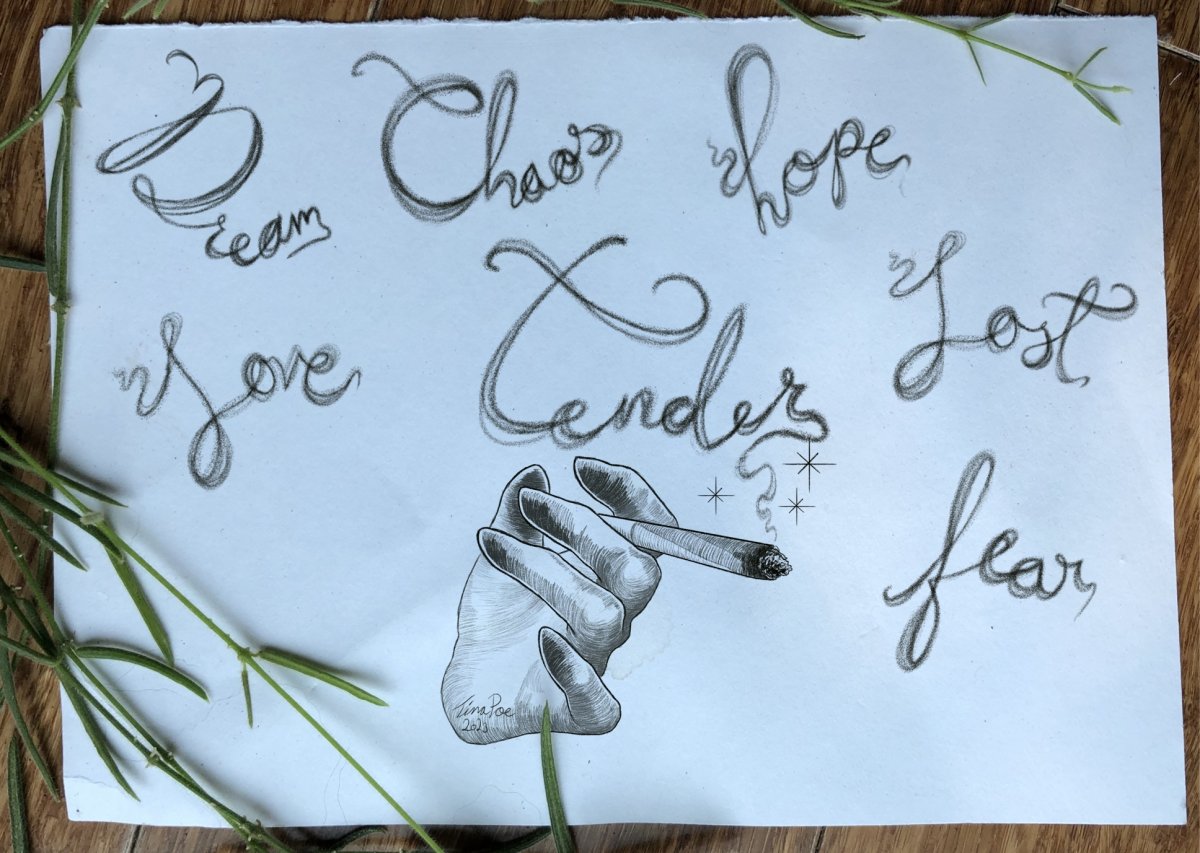 Dream Chaos hope
Love Tender Lost
fear
Tina Poe
2023